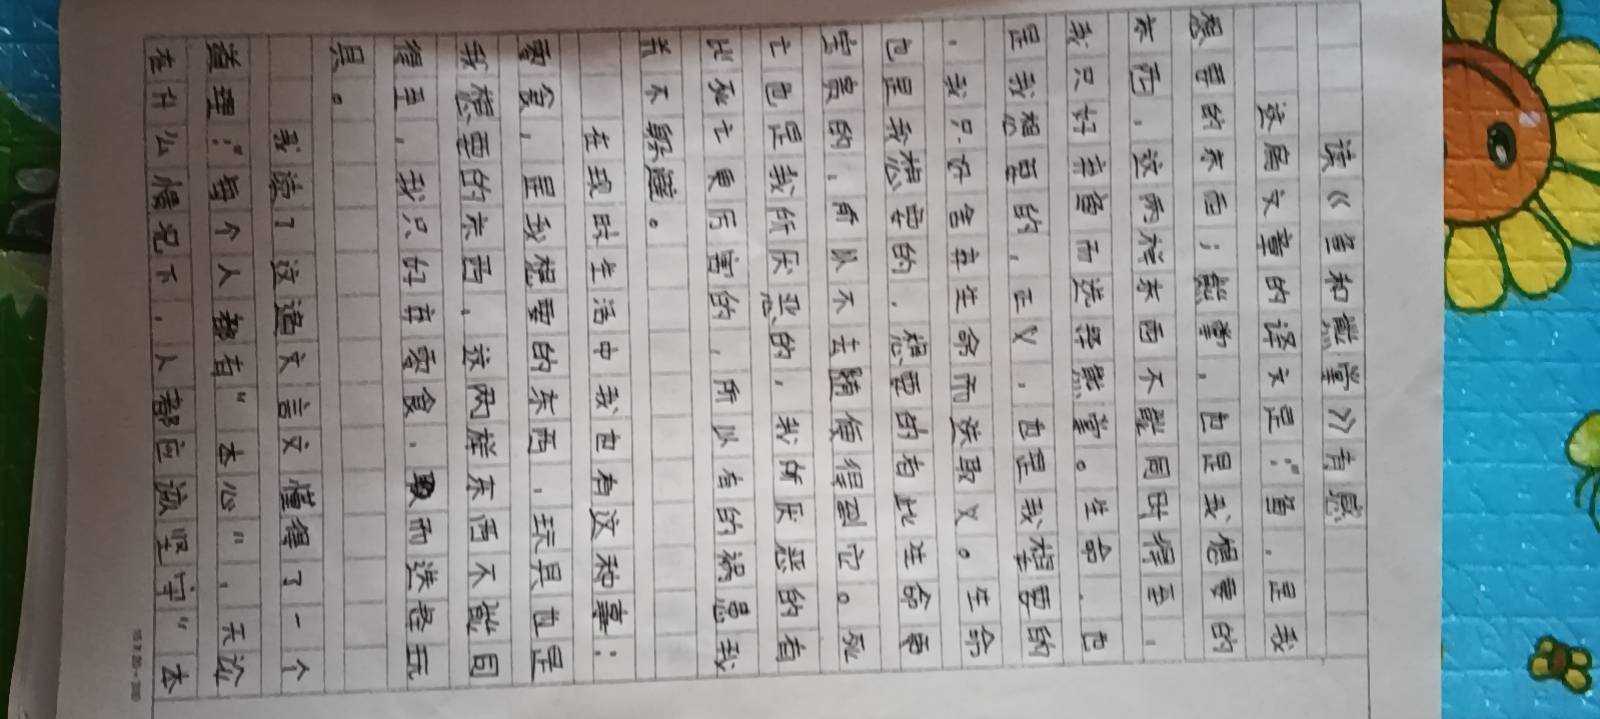 读《鱼和熊掌》有感
这篇文章的译文是:“鱼,是我
想要的东西;熊掌,也是我想要的
东西,这两样东西不能同时得到,
我只好弃鱼而选择熊掌。生命,也
是我想要的,正义,也是我想要的
,我只好舍弃生命而选取义。生命
也是我想要的,想要的有比生命更
宝贵的,所以不去随便得到它。死
亡也是我所厌恶的,我所厌恶的有
比死亡更厉害的,所以有的祸患我
并不躲避。
在现时生活中我也有这种事:
零食,是我想要的东西,玩具也是
我想要的东西,这两样东西不能同
得到,我只好弃零食,而选择玩
具。
我读了这篇文言文懂得了一个
道理:“每个人都有“本心”,无论
在什么情况下,人都应该“坚守”本